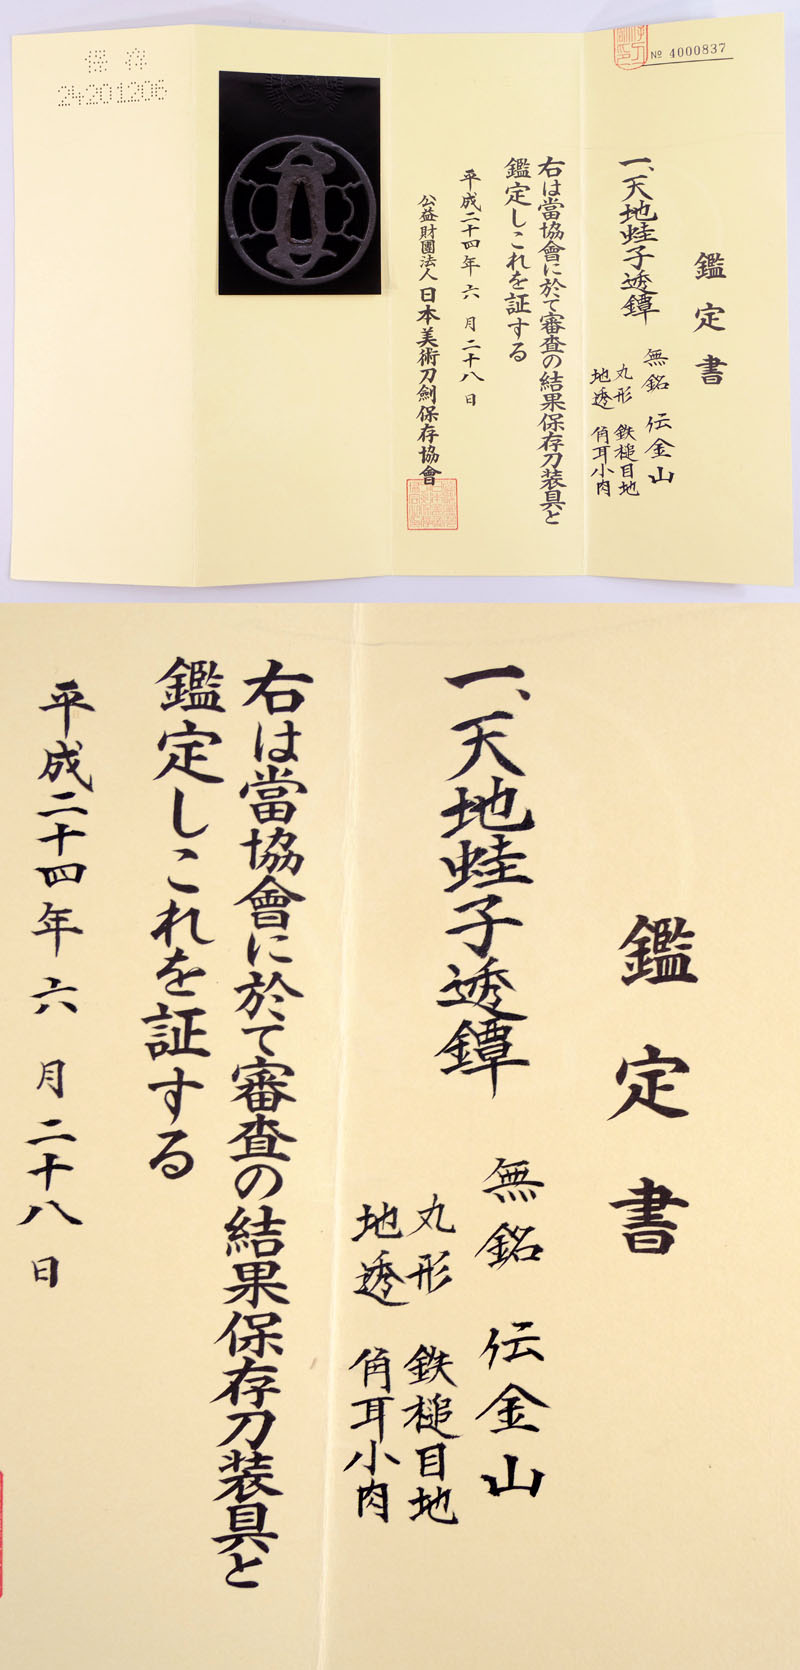 保存
24201206
№ 4000837
鑑定書
一、天地蛙子透鐔
無銘 伝金山
丸形 鉄槌目地
地透 角耳小肉
右は當協會に於て審査の結果保存刀装具と
鑑定しこれを証する
平成二十四年六月二十八日
公益財團法人日本美術刀劍保存協會
鑑定書
一、天地蛙子透鐔
無銘 伝金山
丸形 鉄槌目地
地透 角耳小肉
右は當協會に於て審査の結果保存刀装具と
鑑定しこれを証する
平成二十四年六月二十八日